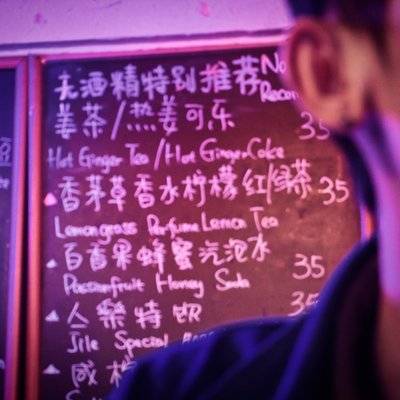 无酒精特别推荐 No
姜茶/热姜可乐 35
Hot Ginger Tea / Hot Ginger Coke
香茅草香水柠檬红/绿茶 35
Lemongrass Perfume Lemon Tea
百香果蜂蜜汽泡水 35
Passionfruit Honey Soda
特饮 35
Special
咸柠